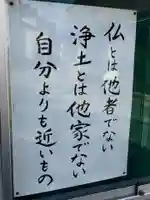 仏とは他者でない
浄土とは他家でない
自分よりも近いもの